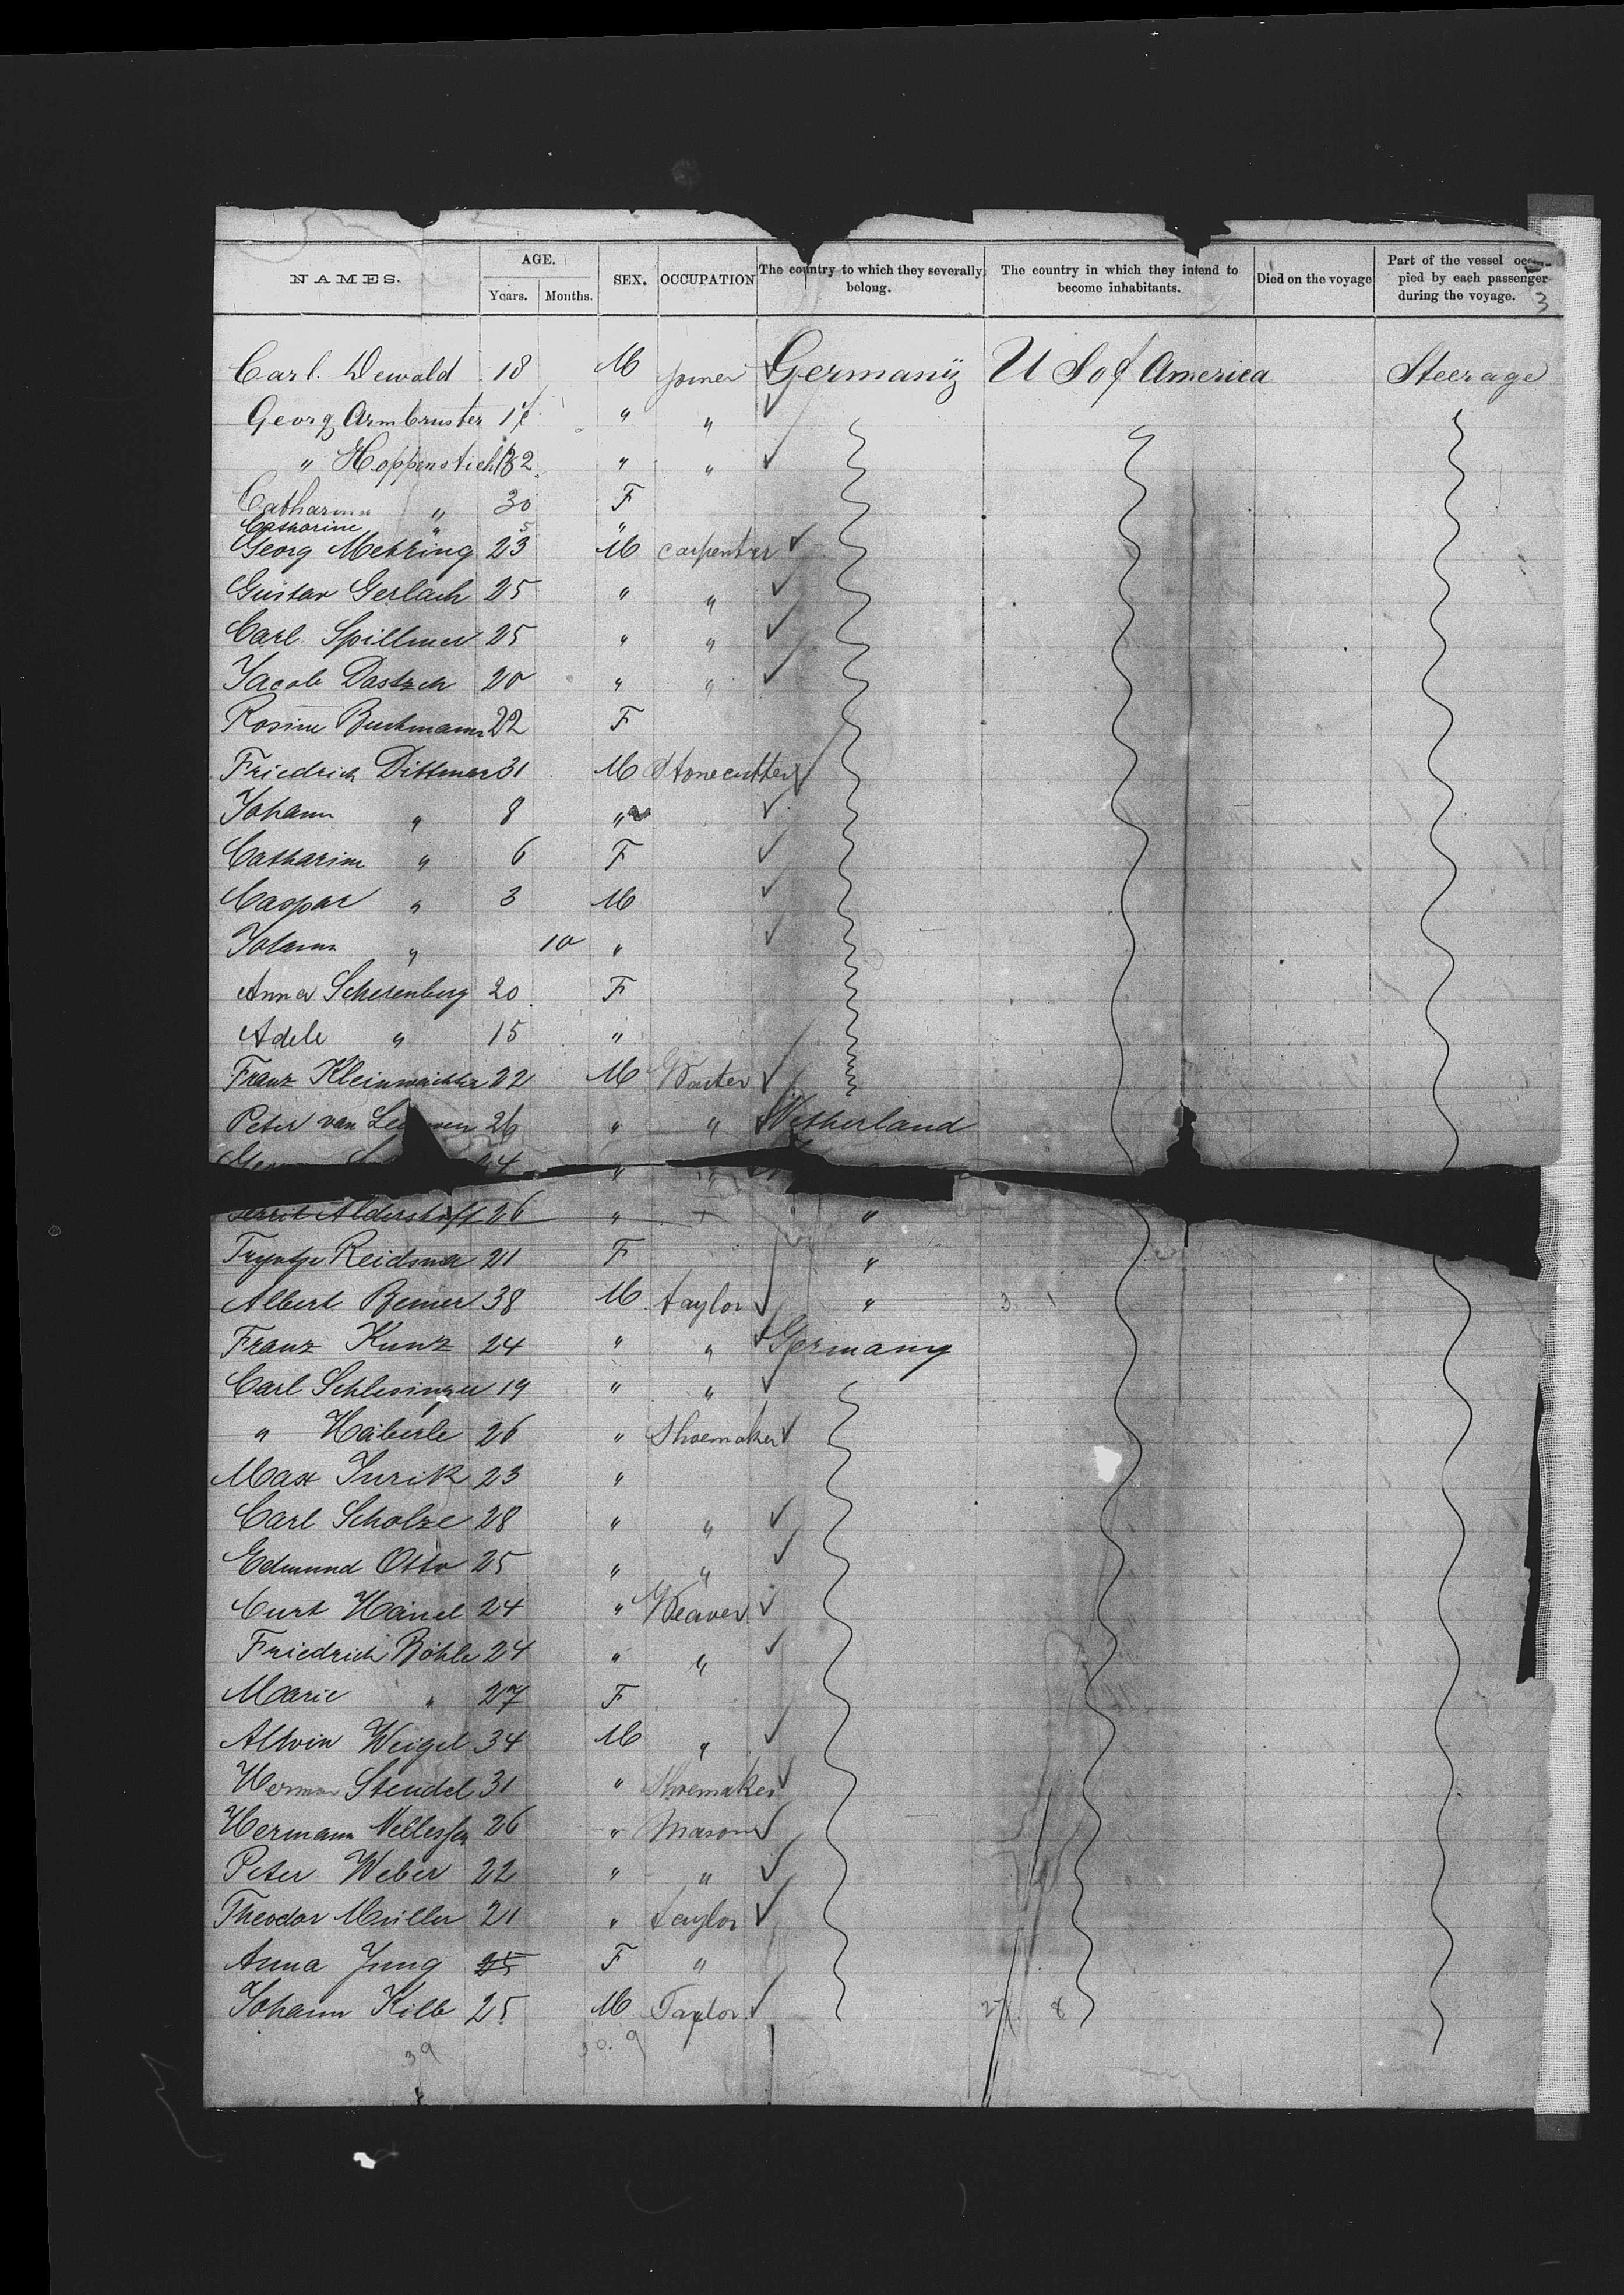 NAMES. AGE. SEX. OCCUPATION The country to which they severally belong. The country in which they intend to become inhabitants. Died on the voyage Part of the vessel occupied by each passenger during the voyage.
Years. Months.
3
Carl. Dewald 18 M joiner Germany U S of America Steerage
Georg Armbruster 17 " "
" Hoppenstich 32 " "
Catharina " 30 F
Catharine " 5 "
Georg Mehring 23 M carpenter
Gustav Gerlach 25 " "
Carl Spillmer 25 " "
Jacob Dastzch 20 " "
Rosine Buckmann 22 F
Friedrich Dittmer 31 M Stonecutter
Johann " 8 "
Catharine " 6 F
Caspar " 3 M
Johann " 10 "
Anna Scherenberg 20 F
Adele " 15 "
Franz Kleinwächter 22 M Waiter
Peter van 26 " " Netherland
24 " "
Aldershoff 26 " "
Tryntje Reidsma 21 F "
Albert Bemer 38 M taylor " 3. 1
Franz Kunz 24 " " Germany
Carl Schlesinger 19 " "
" Häberle 26 " Shoemaker
Max Jurik 23 "
Carl Scholze 28 " "
Edmund Otto 25 " "
Curt Hänel 24 " Weaver
Friedrich Böhle 24 " "
Marie " 27 F
Alwin Weigel 34 M "
Herman Steudel 31 " Shoemaker
Hermann Nellessen 26 " Mason
Peter Weber 22 " "
Theodor Müller 21 " taylor
Anna Jung 25 F "
Johann Kilb 25 M Taylor 27 8
39 30. 9